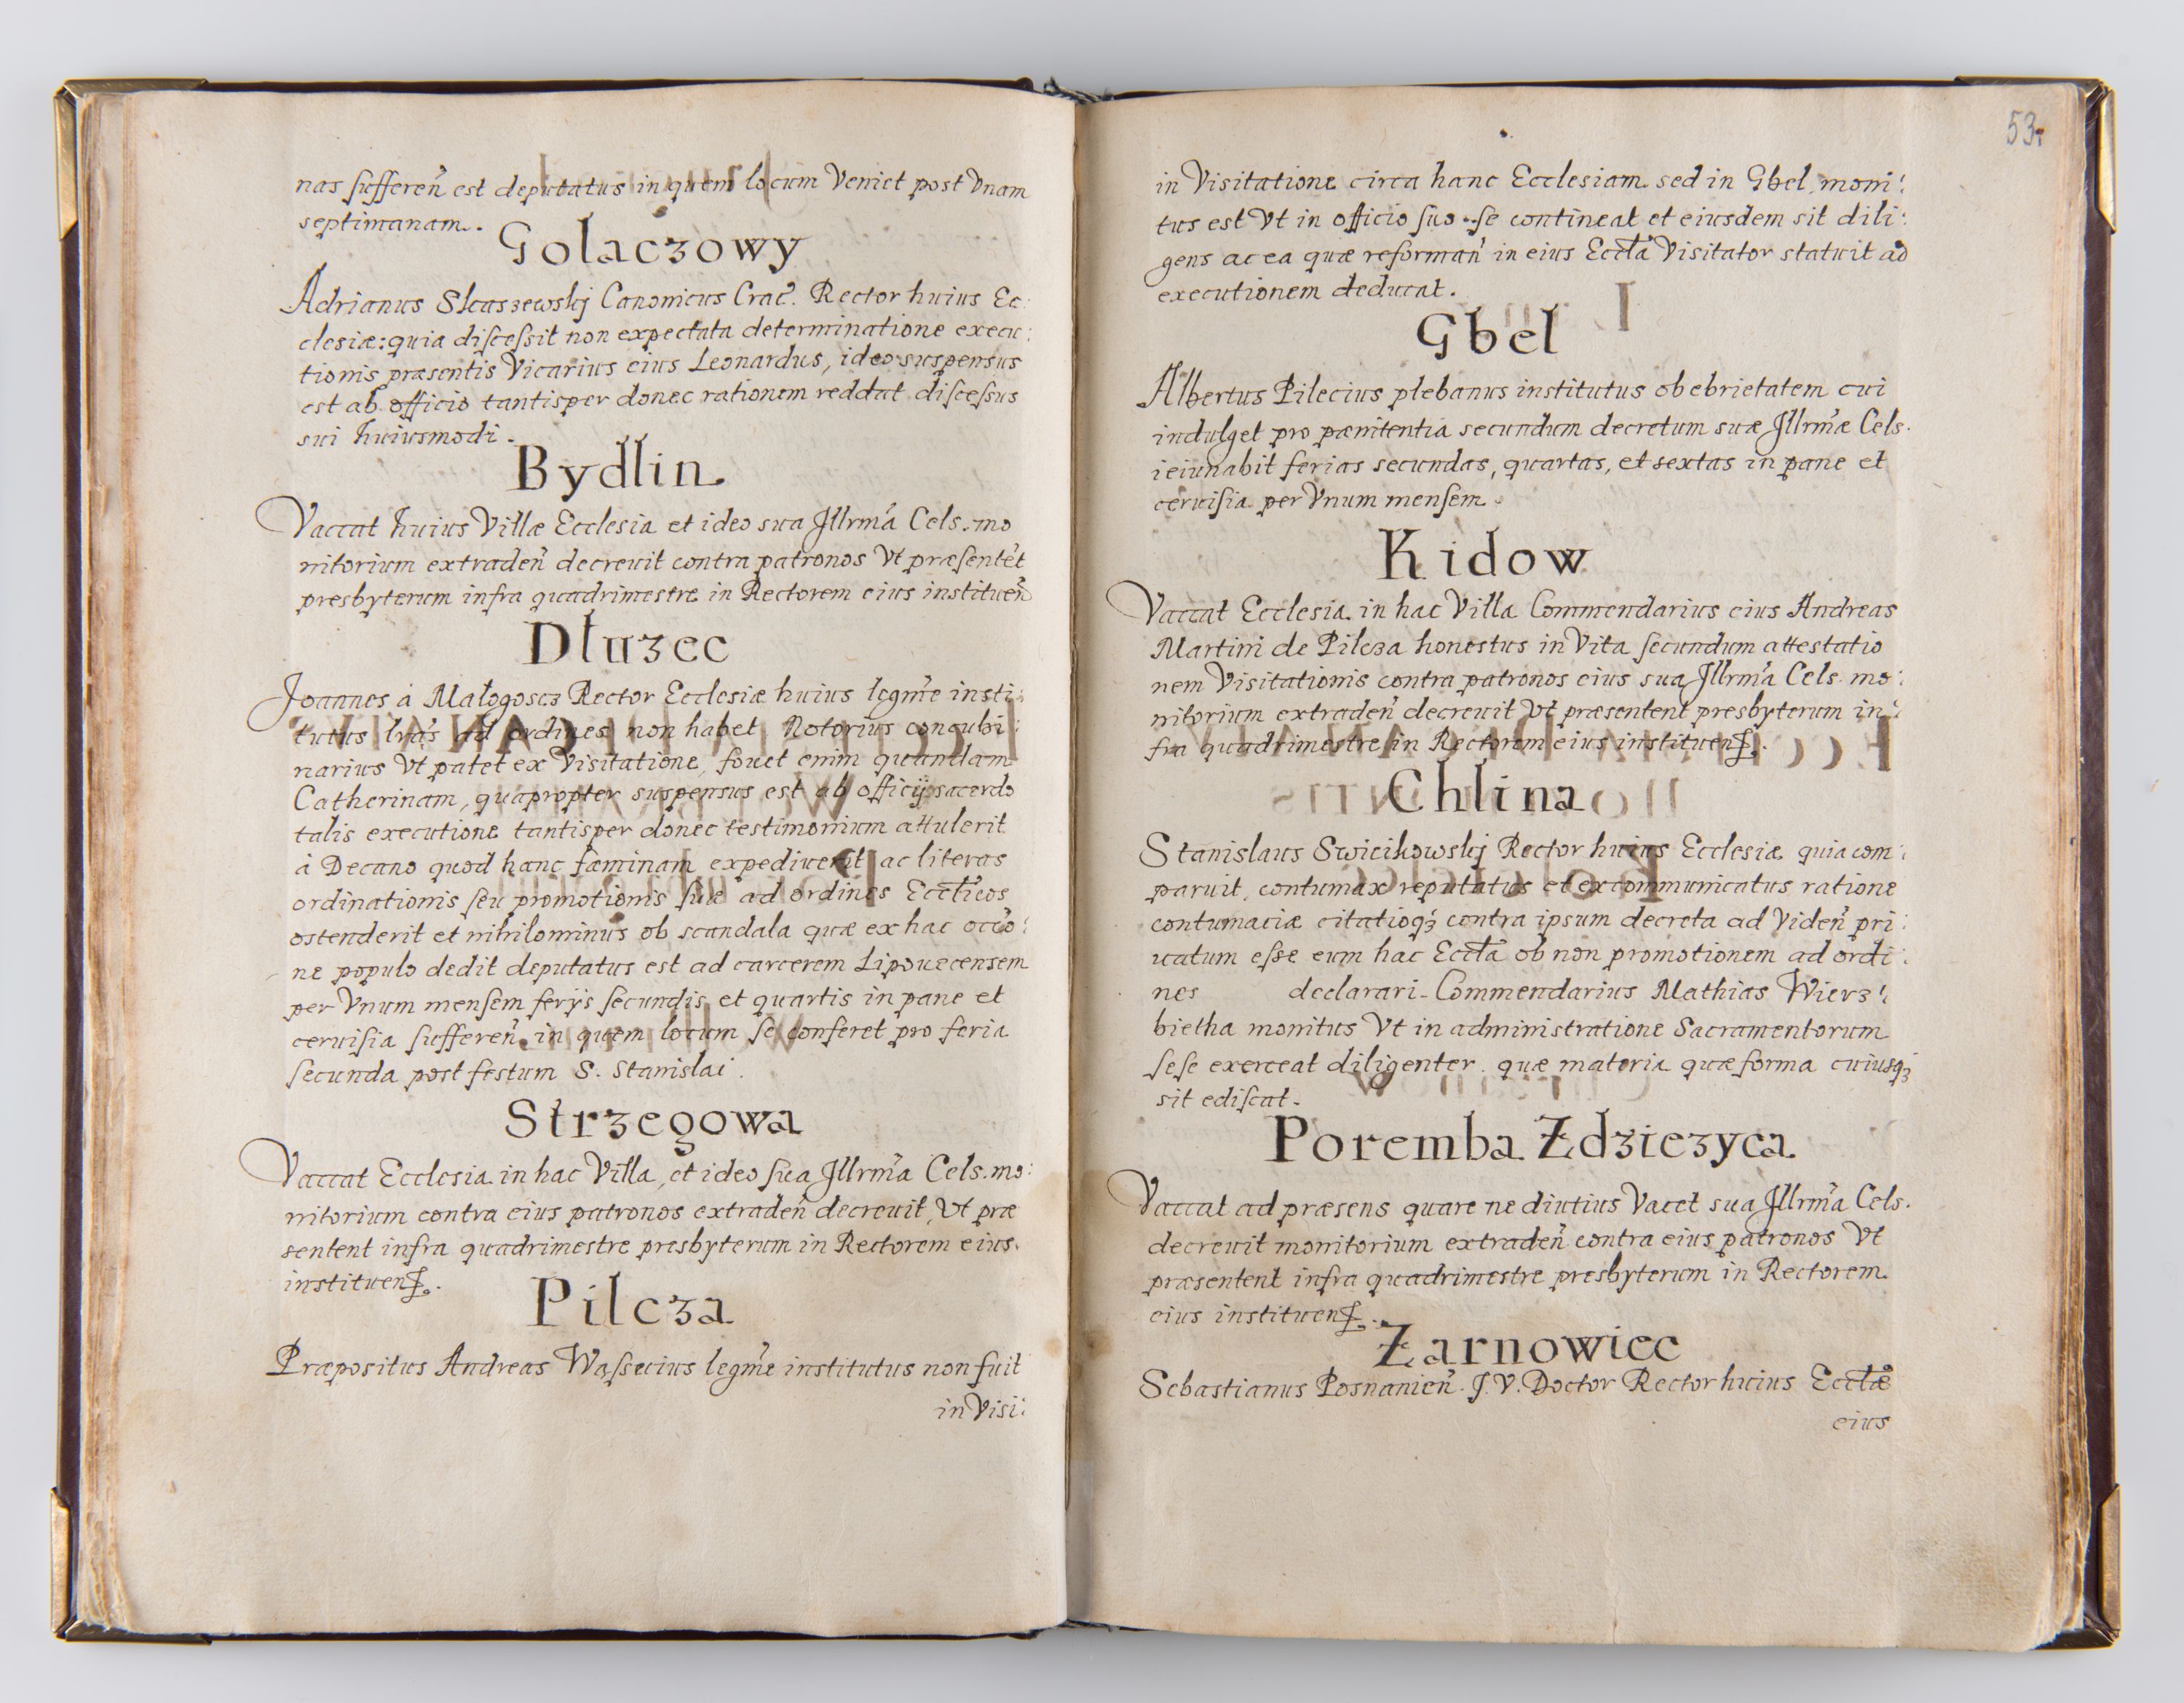 nas sufferen̄ est deputatus in quem locum Veniet post Vnam
septimanam.
Golaczowy
Adrianus Skaszewskj Canonicus Crac̄. Rector huius Ec:
clesiæ: quia discessit non expectata determinatione execu:
tionis præsentis Vicarius eius Leonardus, ideo suspensus
est ab officio tantisper donec rationem reddat discessus
sui huiusmodi.
Bydlin
Vaccat huius Villæ Ecclesia et ideo sua Jllrmā Cels. mo
nitorium extraden̄ decreuit contra patronos Vt præsentēt
presbyterum infra quadrimestre in Rectorem eius instituen̄
Dłuzec
Joannes à Małogoscz Rector Ecclesiæ huius legmē insti:
tutus lrās ad ordines non habet Notorius concubi:
narius Vt patet ex Visitatione, fouet enim quandam
Catherinam, quapropter suspensus est ab officij sacerdo
talis executione tantisper donec testimonium attulerit
à Decano quod hanc fæminam expediuerit ac literas
ordinationis seu promotionis suæ ad ordines Eccticos
ostenderit et nihilominus ob scandala quæ ex hac occō:
ne populo dedit deputatus est ad carcerem Lipouecensem
per Vnum mensem ferijs secundis et quartis in pane et
ceruisia sufferen̄ in quem locum se conferet pro feria
secunda post festum S. Stanislai.
Strzegowa
Vaccat Ecclesia in hac Villa, et ideo sua Jllrmā Cels. mo:
nitorium contra eius patronos extraden̄ decreuit, Vt præ
sentent infra quadrimestre presbyterum in Rectorem eius
instituen
Pilcza
Præpositus Andreas Wąssecius legmē institutus non fuit
in Visi:
53
in Visitatione circa hanc Ecclesiam sed in Gbel, moni:
tus est Vt in officio suo se contineat et eiusdem sit dili:
gens ac ea quæ reforman̄ in eius Ecctā Visitator statuit ad
executionem deducat.
Gbel
Albertus Pilecius plebanus institutus ob ebrietatem cui
indulget pro pænitentia secundum decretum suæ Jllrmæ Cels.
ieiunabit ferias secundas, quartas, et sextas in pane et
ceruisia per Vnum mensem.
Kidow
Vaccat Ecclesia in hac Villa Commendarius eius Andreas
Martini de Pilcza honestus in Vita secundum attestatio
nem Visitationis contra patronos eius sua Jllrmā Cels. mo:
nitorium extraden̄ decreuit Vt præsentent presbyterum in:
fra quadrimestre in Rectorem eius instituen
Chlina
Stanislaus Swicikowskj Rector huius Ecclesiæ quia com:
paruit, contumax reputatus et excommunicatus ratione
contumaciæ citatioqȝ contra ipsum decreta ad Viden̄ pri:
uatum esse eum hac Ecctā ob non promotionem ad ordi:
nes declarari. Commendarius Mathias Wierz:
bietha monitus Vt in administratione Sacramentorum
sese exerceat diligenter. quæ materia quæ forma cuiusqȝ
sit ediscat.
Poremba Zdziezyca
Vaccat ad præsens quare ne diutius Vacet sua Jllrmā Cels.
decreuit monitorium extraden̄ contra eius patronos Vt
præsentent infra quadrimestre presbyterum in Rectorem
eius instituen
Zarnowiec
Sebastianus Posnanien̄. J. V. Doctor Rector huius Ecctæ
eius